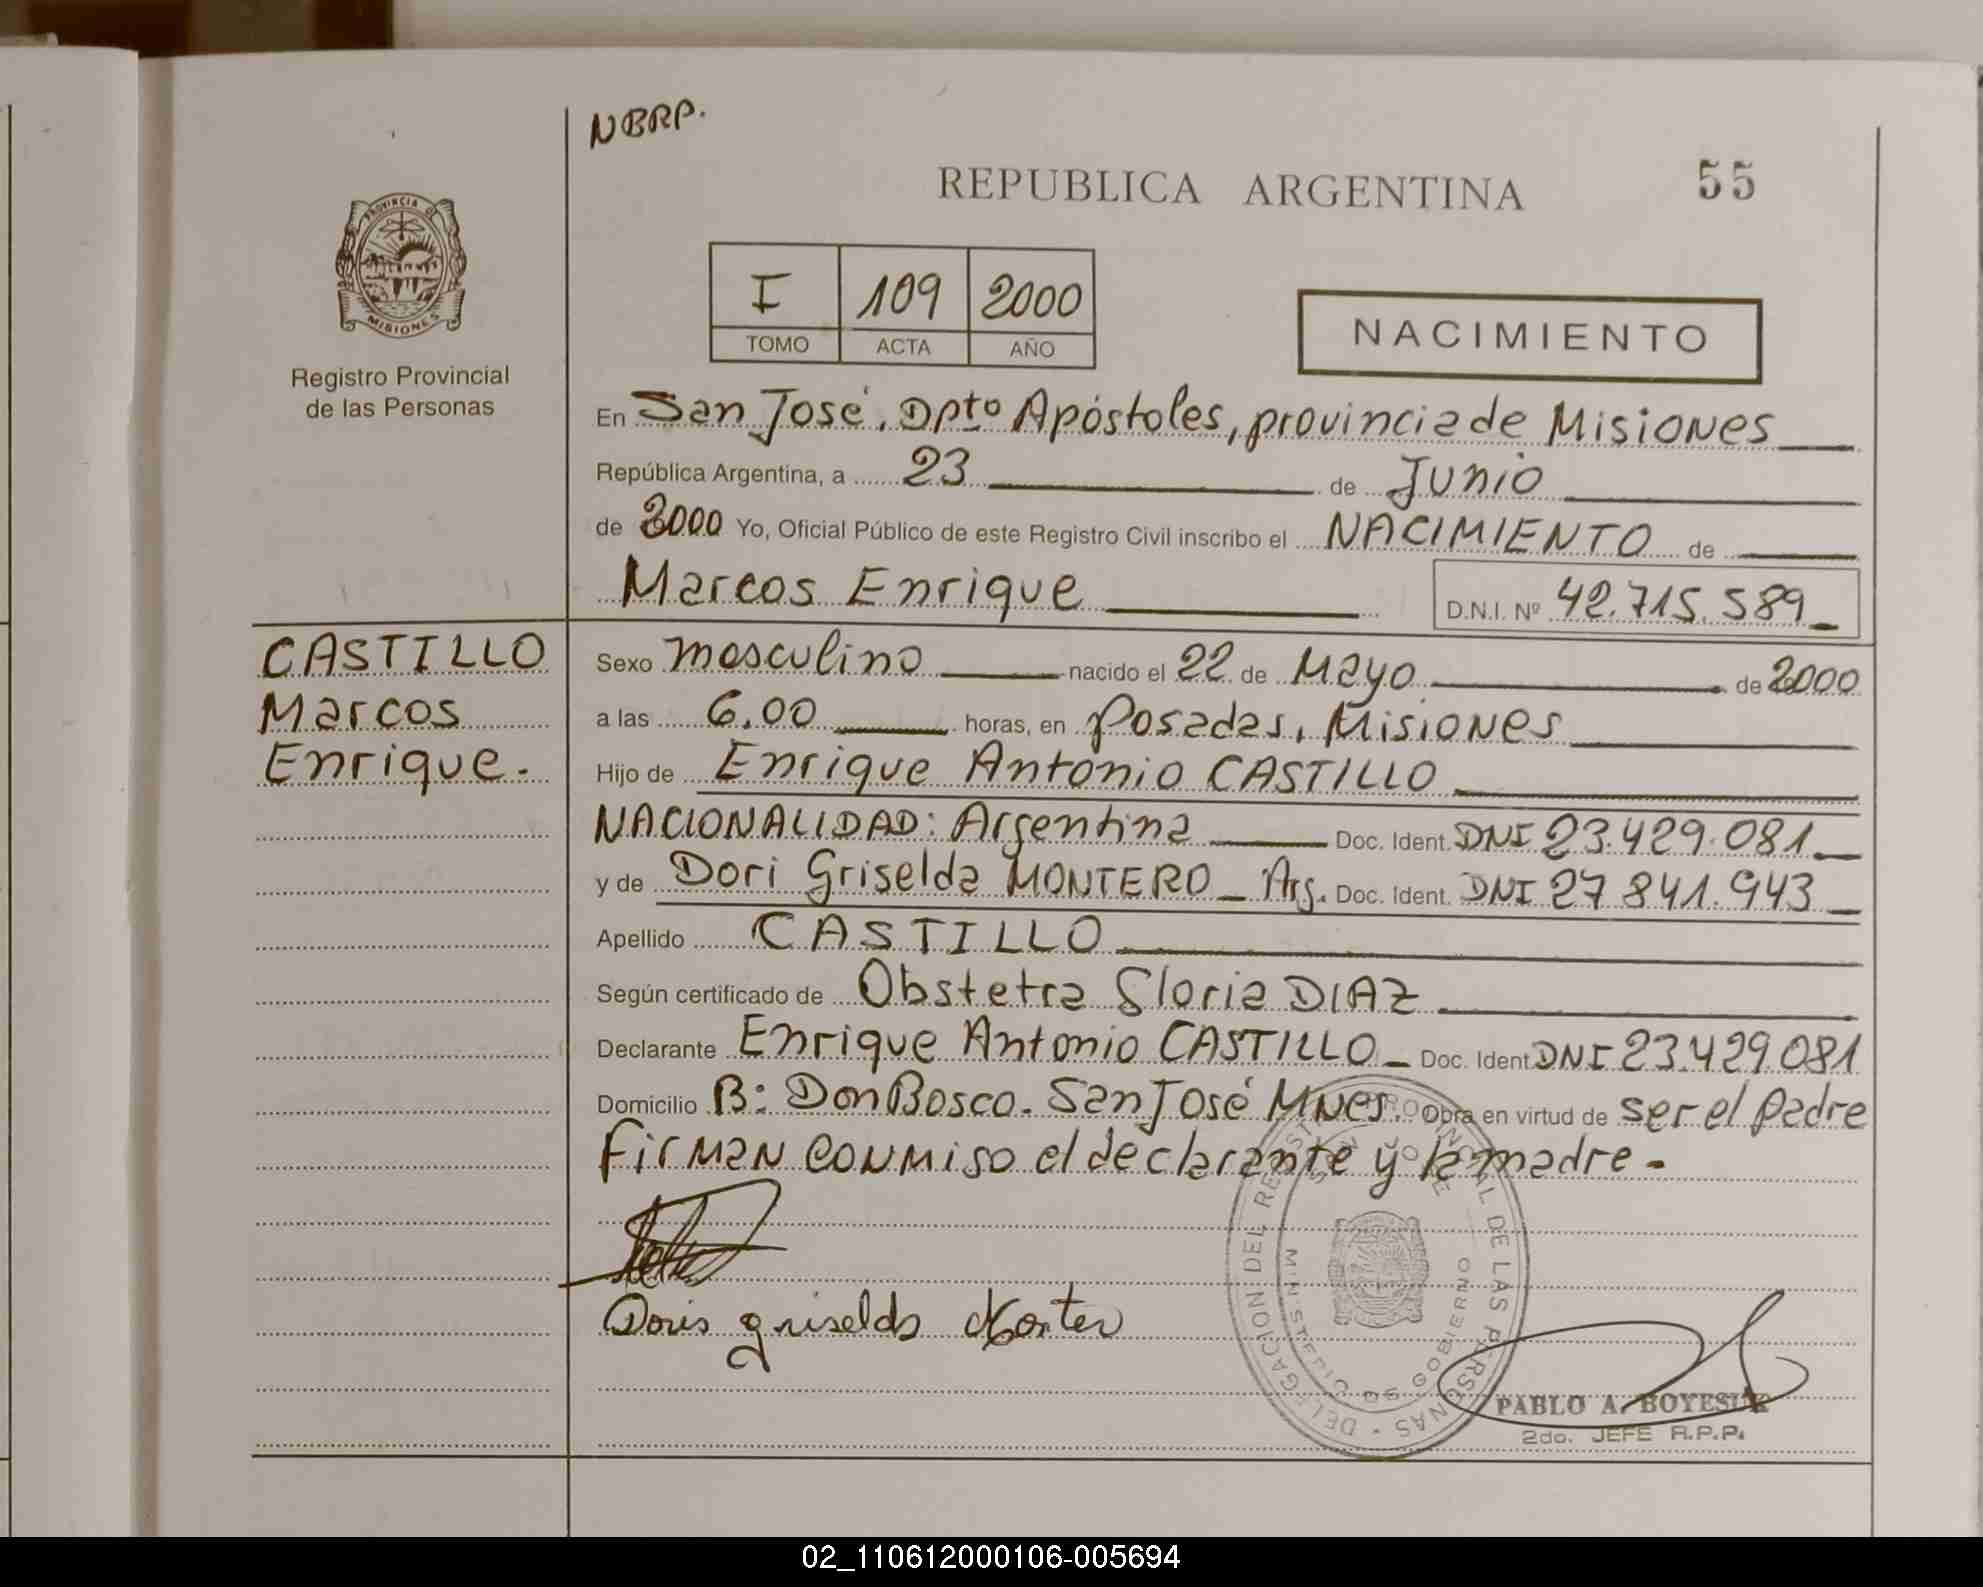 NBRP.
REPUBLICA ARGENTINA
55
PROVINCIA DE
MISIONES
Registro Provincial
de las Personas
I 109 2000
TOMO ACTA AÑO
NACIMIENTO
En San José, Dpto Apóstoles, provincia de Misiones
República Argentina, a 23 de Junio
de 2000 Yo, Oficial Público de este Registro Civil inscribo el NACIMIENTO de
Marcos Enrique D.N.I. Nº 42.715.589
CASTILLO
Marcos
Enrique.
Sexo masculino nacido el 22 de Mayo de 2000
a las 6.00 horas, en Posadas, Misiones
Hijo de Enrique Antonio CASTILLO
NACIONALIDAD: Argentina Doc. Ident. DNI 23.429.081
y de Dori Griselda MONTERO Arg. Doc. Ident. DNI 27 841.943
Apellido CASTILLO
Según certificado de Obstetra Gloria DIAZ
Declarante Enrique Antonio CASTILLO Doc. Ident DNI 23.429.081
Domicilio B: Don Bosco. San José Mnes. Obra en virtud de ser el padre
Firman conmigo el declarante y la madre.
Doris griselda
DELEGACION DEL REGISTRO PROVINCIAL DE LAS PERSONAS
MINISTERIO DE GOBIERNO
PABLO A. BOYESUK
2do. JEFE R.P.P.
02_110612000106-005694